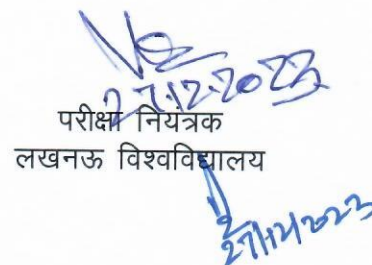 27.12.2023
परीक्षा नियंत्रक
लखनऊ विश्वविद्यालय
27/12/2023